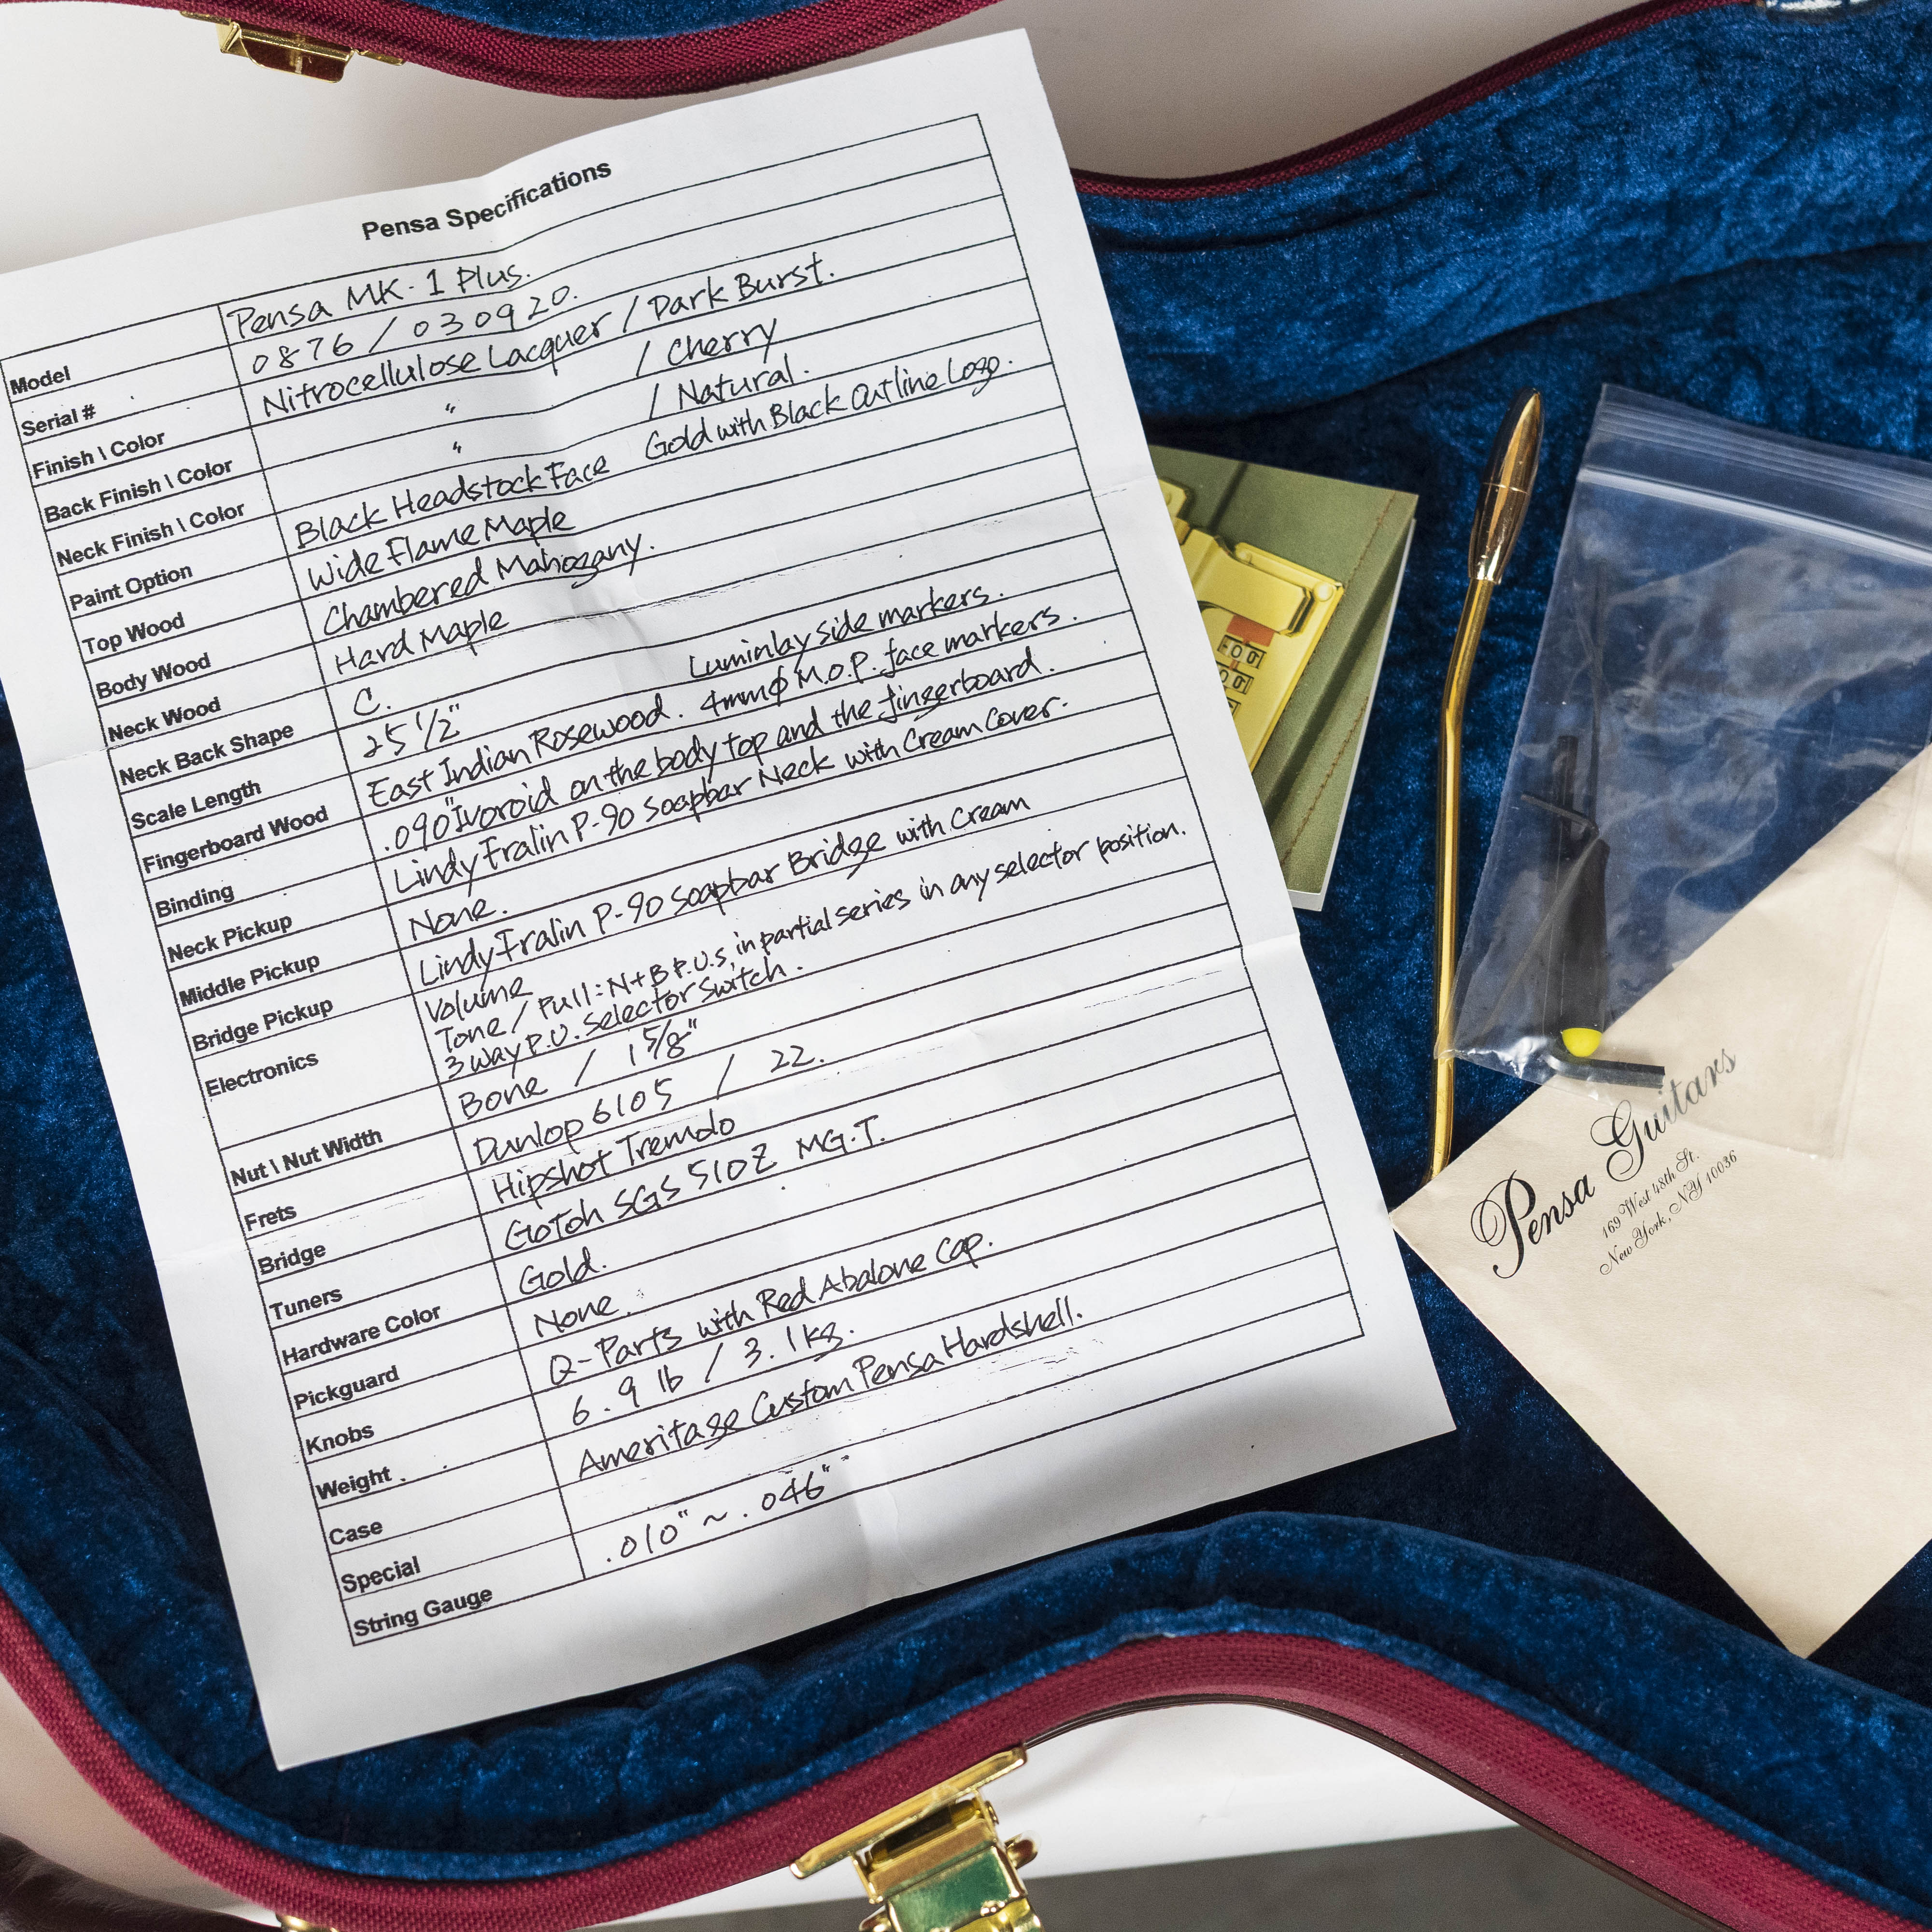 Pensa Specifications
Model Pensa MK-1 Plus.
Serial # 0876 / 030920.
Finish \ Color Nitrocellulose Lacquer / Dark Burst.
Back Finish \ Color " / Cherry
Neck Finish \ Color " / Natural.
Paint Option Black Headstock Face Gold with Black Outline Logo.
Top Wood Wide Flame Maple
Body Wood Chambered Mahogany.
Neck Wood Hard Maple
Neck Back Shape C.
Scale Length 25 1/2" Luminlay side markers.
Fingerboard Wood East Indian Rosewood. 4mmϕ M.O.P. face markers.
Binding .090" Ivoroid on the body top and the fingerboard.
Neck Pickup Lindy Fralin P-90 Soapbar Neck with Cream Cover.
Middle Pickup None.
Bridge Pickup Lindy Fralin P-90 Soapbar Bridge with Cream
Electronics Volume
Tone / Pull: N+B P.U.s, in partial series in any selector position.
3 way P.U. Selector Switch.
Nut \ Nut Width Bone / 1 5/8"
Frets Dunlop 6105 / 22.
Bridge Hipshot Tremolo
Tuners GOTOH SGS 510Z MG-T.
Hardware Color Gold.
Pickguard None.
Knobs Q-Parts with Red Abalone Cap.
Weight 6.9 lb / 3.1kg.
Case Ameritage Custom Pensa Hardshell.
Special
String Gauge .010" ~ .046"
Pensa Guitars
169 West 48th St.
New York, NY 10036